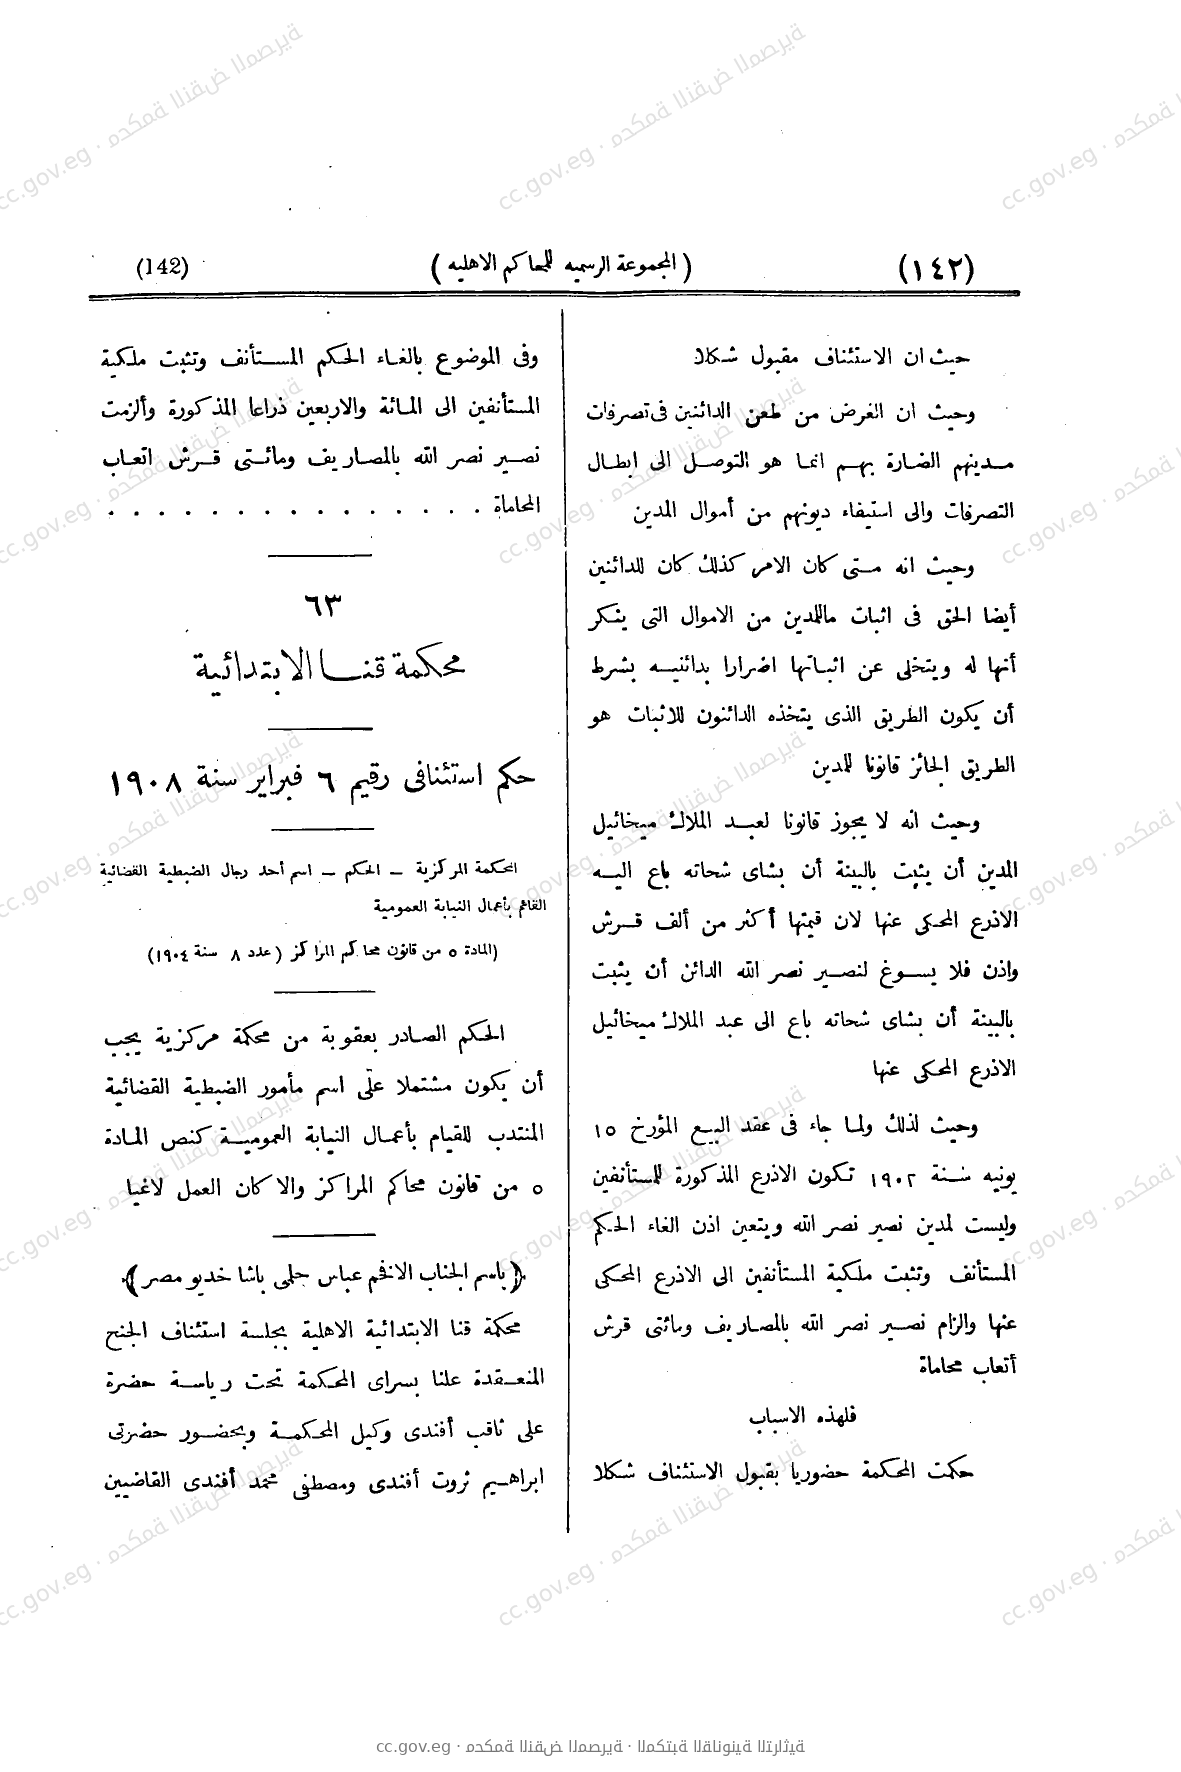 (١٤٢)
( المجموعة الرسميه للمحاكم الاهليه )
(142)
حيث ان الاستئناف مقبول شكلا
وحيث ان الغرض من طعن الدائنين فى تصرفات
مدينهم الضارة بهم انما هو التوصل الى ابطال
التصرفات والى استيفاء ديونهم من أموال المدين
وحيث انه متى كان الامر كذلك كان للدائنين
أيضا الحق فى اثبات ماللمدين من الاموال التى ينكر
أنها له ويتخلى عن اثباتها اضرارا بدائنيه بشرط
أن يكون الطريق الذى يتخذه الدائنون للاثبات هو
الطريق الجائز قانونا للمدين
وحيث انه لا يجوز قانونا لعبد الملاك ميخائيل
المدين أن يثبت بالبينة أن بشاى شحاته باع اليه
الاذرع المحكى عنها لان قيمتها أكثر من ألف قرش
واذن فلا يسوغ لنصير نصر الله الدائن أن يثبت
بالبينة أن بشاى شحاته باع الى عبد الملاك ميخائيل
الاذرع المحكى عنها
وحيث لذلك ولما جاء فى عقد البيع المؤرخ ١٥
يونيه سنة ١٩٠٢ تكون الاذرع المذكورة للمستأنفين
وليست لمدين نصير نصر الله ويتعين اذن الغاء الحكم
المستأنف وتثبت ملكية المستأنفين الى الاذرع المحكى
عنها والزام نصير نصر الله بالمصاريف ومائتى قرش
أتعاب محاماة
فلهذه الاسباب
حكمت المحكمة حضوريا بقبول الاستئناف شكلا
وفى الموضوع بالغاء الحكم المستأنف وتثبت ملكية
المستأنفين الى المائة والاربعين ذراعا المذكورة وألزمت
نصير نصر الله بالمصاريف ومائتى قرش اتعاب
المحاماة . . . . . . . . . . . . . . .
٦٣
محكمة قنا الابتدائية
حكم استئنافى رقيم ٦ فبراير سنة ١٩٠٨
المحكمة المركزية – الحكم – اسم أحد رجال الضبطية القضائية
القائم بأعمال النيابة العمومية
(المادة ٥ من قانون محاكم المراكز (عدد ٨ سنة ١٩٠٤)
الحكم الصادر بعقوبة من محكمة مركزية يجب
أن يكون مشتملا على اسم مأمور الضبطية القضائية
المنتدب للقيام بأعمال النيابة العمومية كنص المادة
٥ من قانون محاكم المراكز والا كان العمل لاغيا
﴿ باسم الجناب الافخم عباس حلمى باشا خديو مصر ﴾
محكمة قنا الابتدائية الاهلية بجلسة استئناف الجنح
المنعقدة علنا بسراى المحكمة تحت رياسة حضرة
على ثاقب أفندى وكيل المحكمة وبحضور حضرتى
ابراهيم ثروت أفندى ومصطفى محمد أفندى القاضيين
cc.gov.eg · محكمة النقض المصرية · المكتبة القانونية التراثية